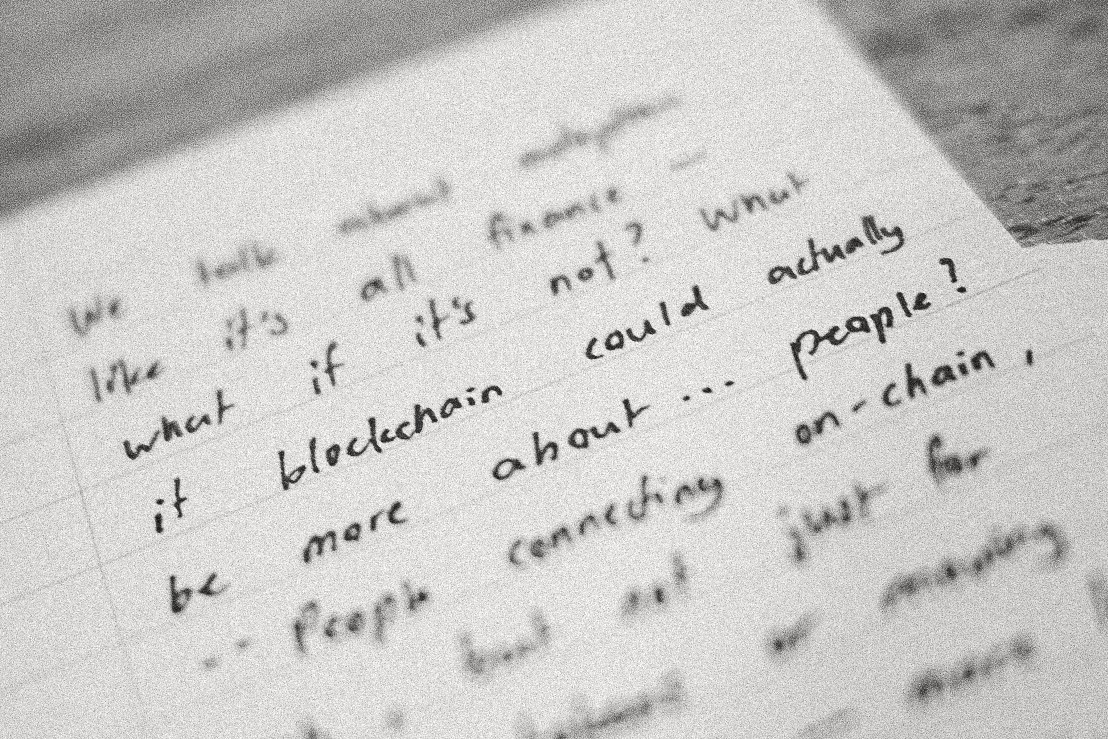 We talk about
like it's all finance —
what if it's not? What
it blockchain could actually
be more about... people?
.. People connecting on-chain,
but not just for
or